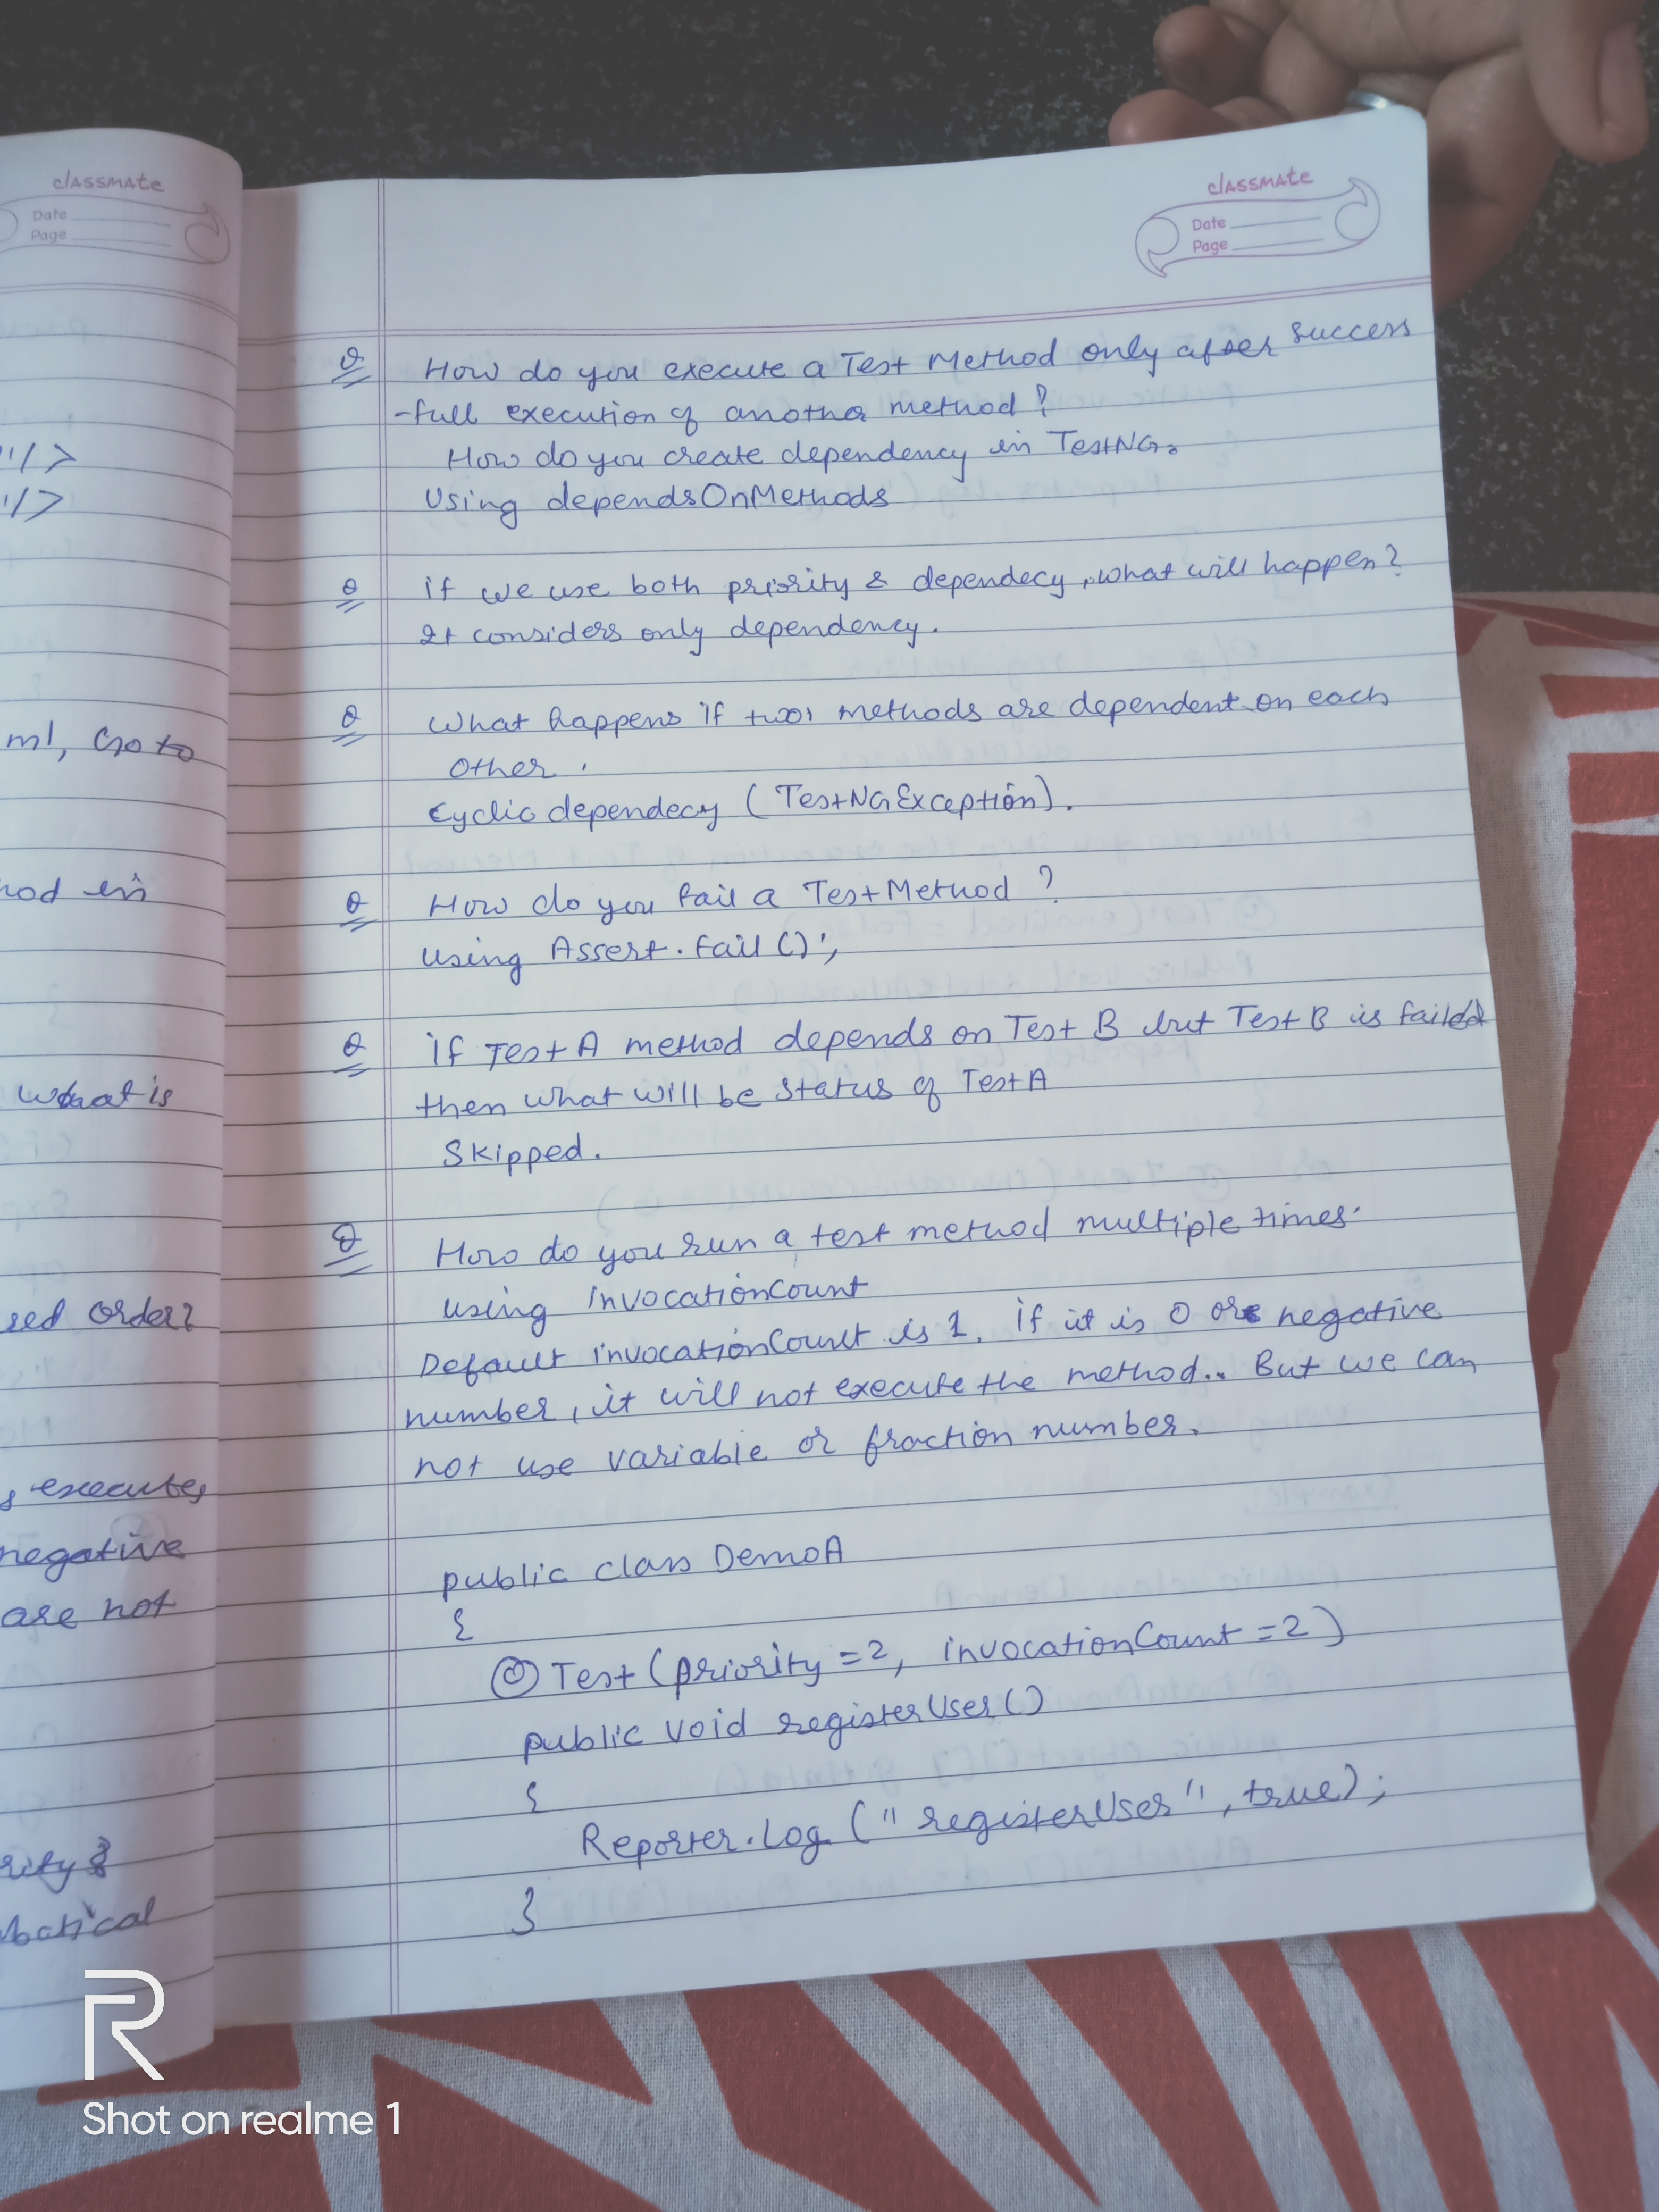 classmate
Date
Page
"/>
"/>
ml, Go to
hod in
what is
red order?
s executes
negative
are not
rity &
batical
classmate
Date
Page
Q How do you execute a Test Method only after success
-full execution of another method?
How do you create dependency in TestNG.
Using dependsOnMethods
Q if we use both priority & dependecy, what will happen?
It considers only dependency.
Q What happens if two methods are dependent on each
other.
Cyclic dependecy (TestNGException).
Q How do you fail a TestMethod?
using Assert.fail();
Q if Test A method depends on Test B but Test B is failed
then what will be status of Test A
Skipped.
Q How do you run a test method multiple times.
using invocationCount
Default invocationCount is 1. if it is 0 or negative
number, it will not execute the method.. But we can
not use variable or fraction number.
public class DemoA
{
@Test(priority=2, invocationCount=2)
public void registerUser()
{
Reporter.log("registerUser", true);
}
R
Shot on realme 1